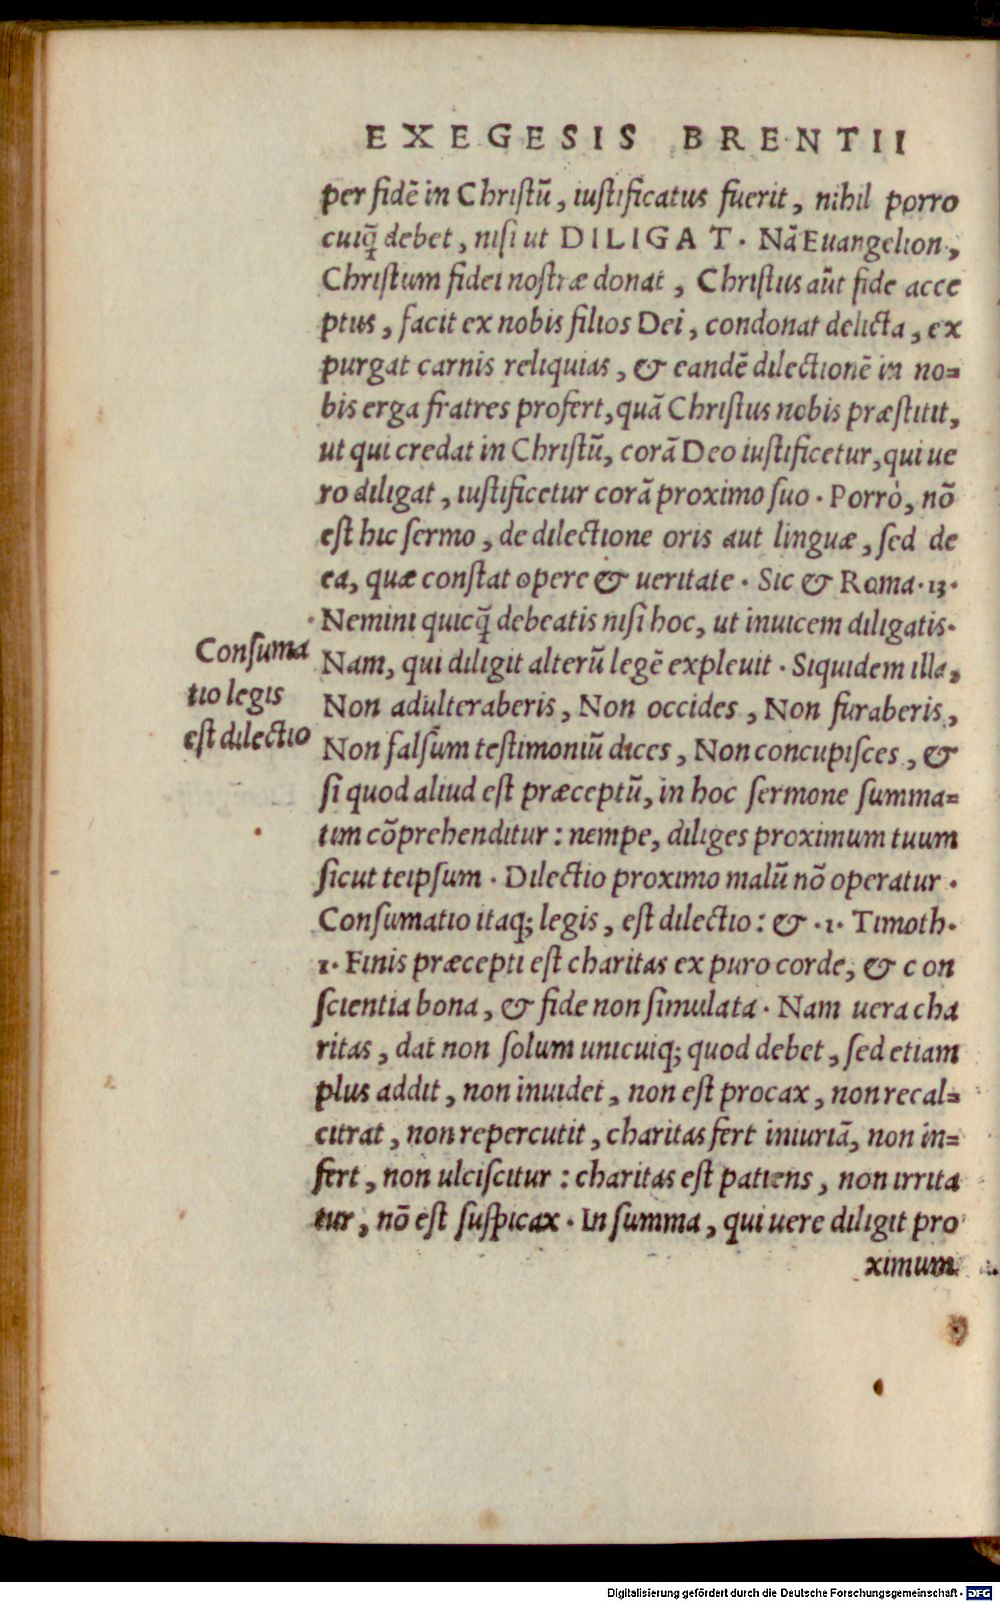 EXEGESIS BRENTII
per fidē in Chriſtū, iuſtificatus fuerit, nihil porro
cuiq̄ debet, niſi ut DILIGAT. Nā Euangelion,
Chriſtum fidei noſtræ donat, Chriſtus aūt fide acce
ptus, facit ex nobis filios Dei, condonat delicta, ex
purgat carnis reliquias, & eandē dilectionē in no=
bis erga fratres profert, quā Chriſtus nobis præſtitit,
ut qui credat in Chriſtū, corā Deo iuſtificetur, qui ue
ro diligat, iuſtificetur corā proximo ſuo. Porrò, nō
eſt hic ſermo, de dilectione oris aut linguæ, ſed de
ea, quæ conſtat opere & ueritate. Sic & Roma.13.
Nemini quicq̄ debeatis niſi hoc, ut inuicem diligatis.
Conſuma
tio legis
eſt dilectio
Nam, qui diligit alterū legē expleuit. Siquidem illa,
Non adulteraberis, Non occides, Non furaberis,
Non falſum teſtimoniū dices, Non concupiſces, &
ſi quod aliud eſt præceptū, in hoc ſermone ſumma=
tim cōprehenditur: nempe, diliges proximum tuum
ſicut teipſum. Dilectio proximo malū nō operatur.
Conſumatio itaq; legis, eſt dilectio: & .1. Timoth.
1. Finis præcepti eſt charitas ex puro corde, & con
ſcientia bona, & fide non ſimulata. Nam uera cha
ritas, dat non ſolum unicuiq; quod debet, ſed etiam
plus addit, non inuidet, non eſt procax, non recal=
citrat, non repercutit, charitas fert iniuriā, non in=
fert, non ulciſcitur: charitas eſt patiens, non irrita
tur, nō eſt ſuſpicax. In ſumma, qui uere diligit pro
ximum
Digitalisierung gefördert durch die Deutsche Forschungsgemeinschaft - DFG